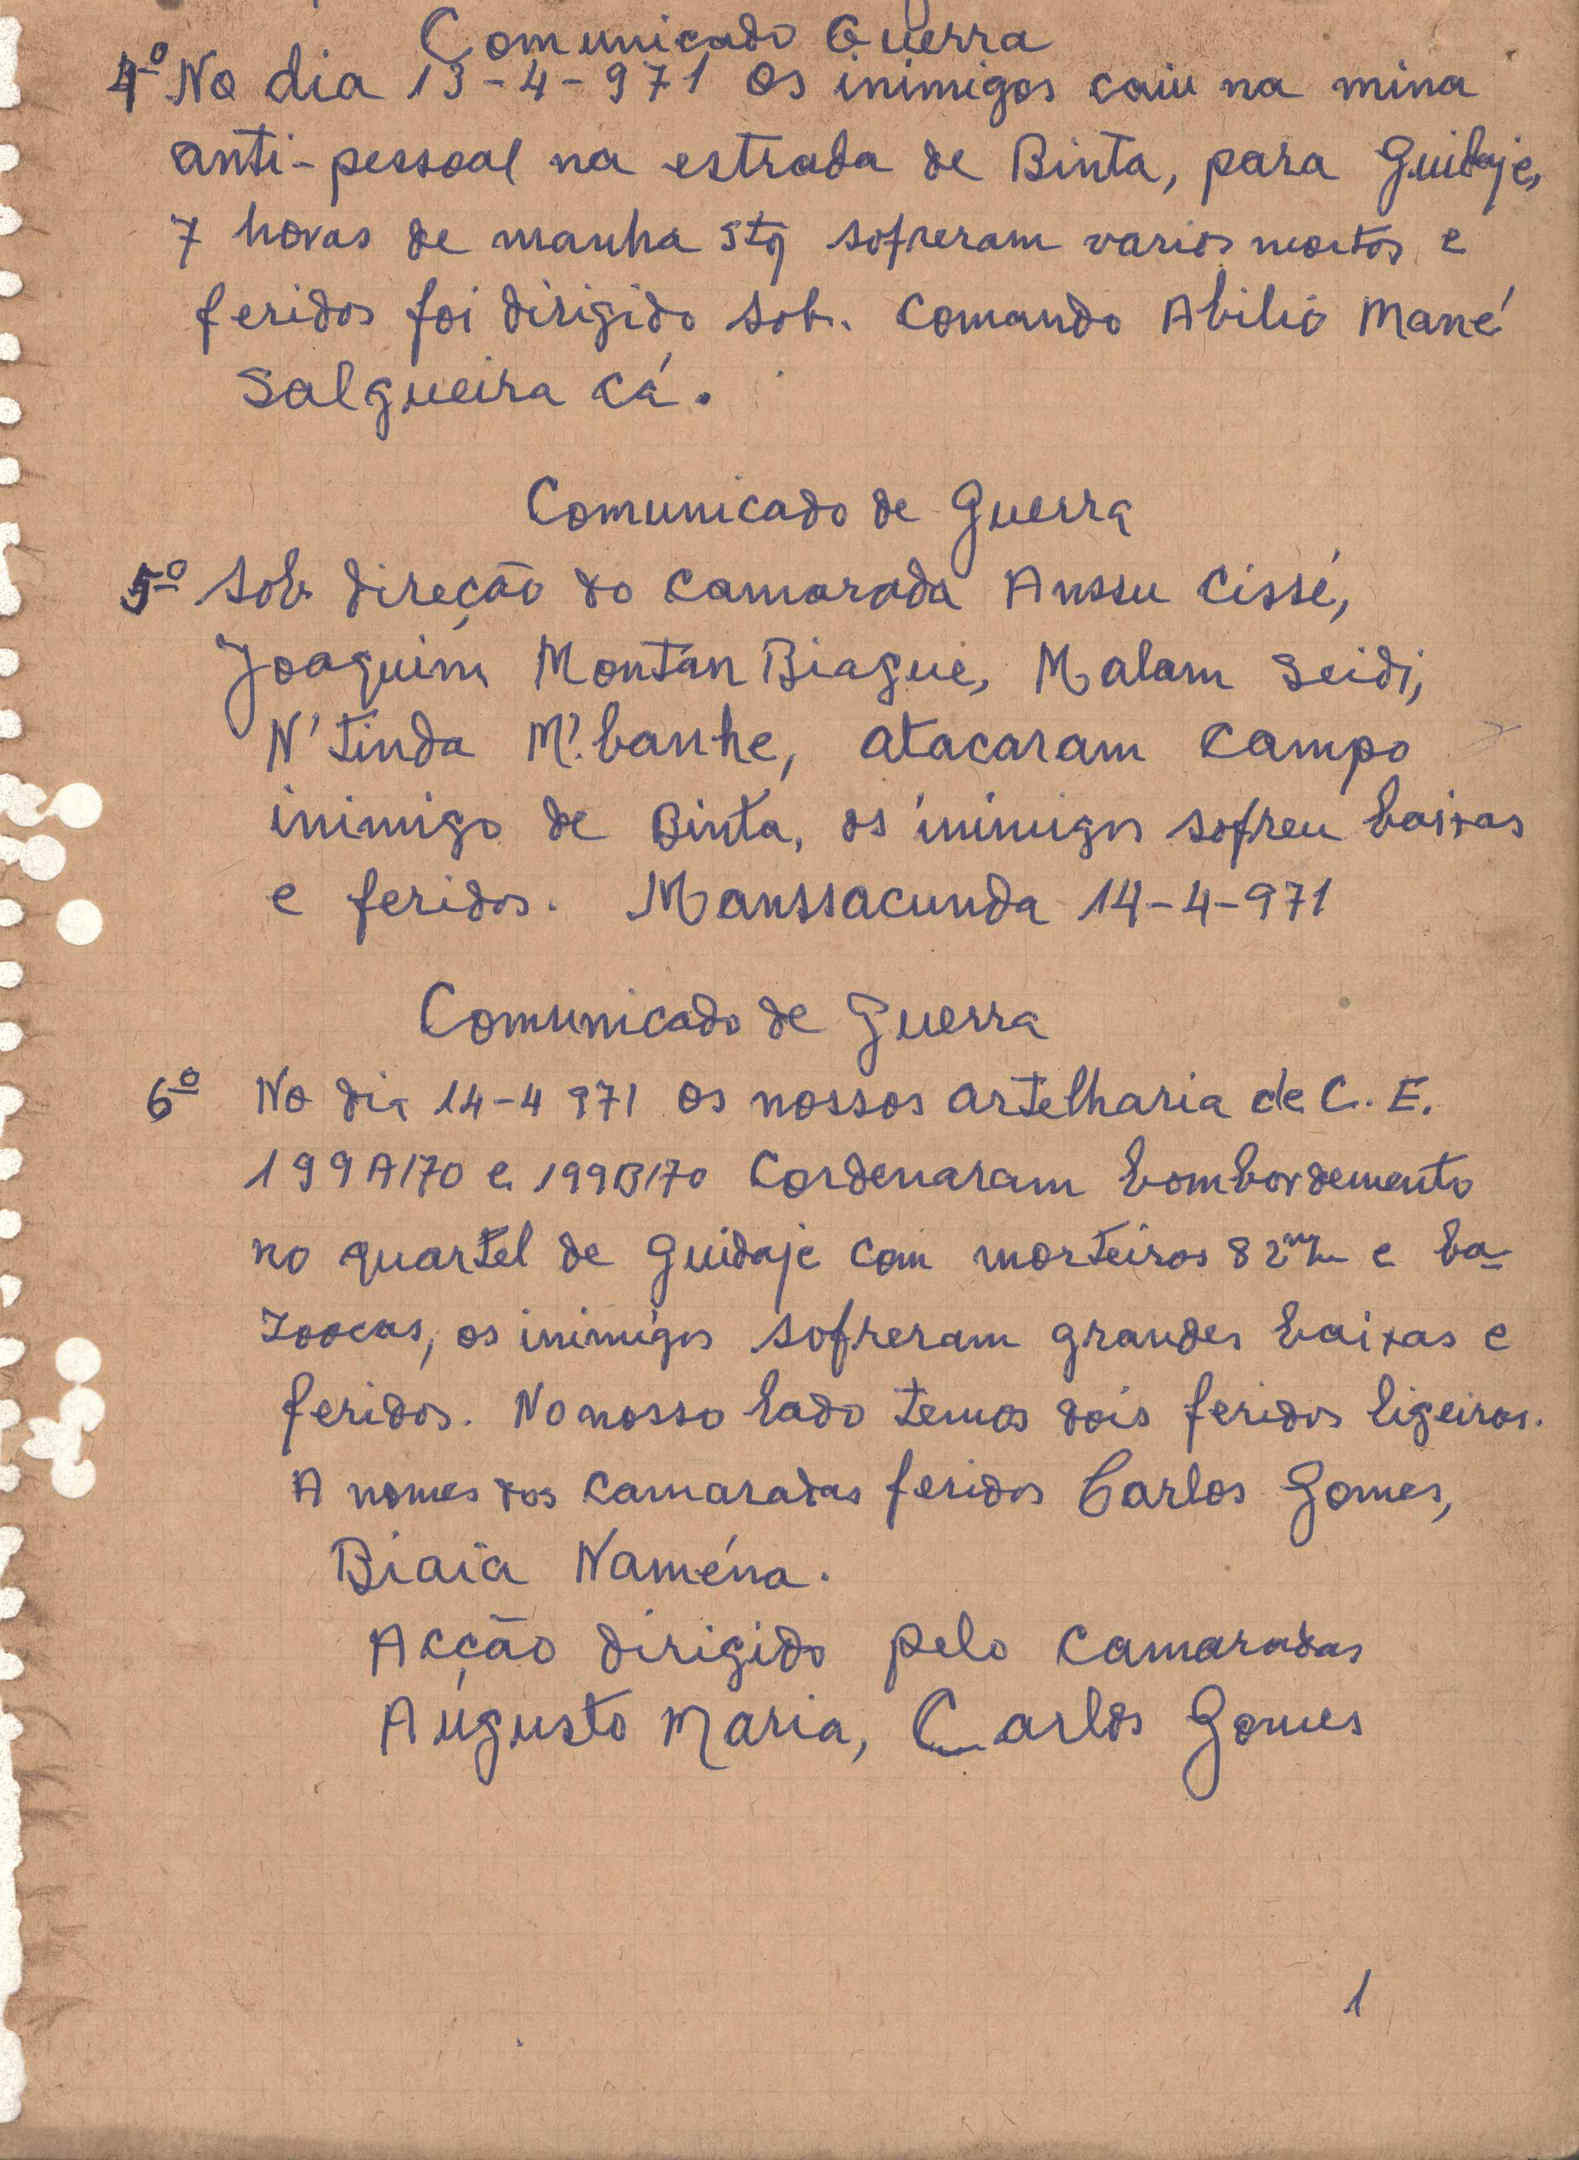 Comunicado Guerra
4º No dia 13-4-971 Os inimigos caiu na mina
anti-pessoal na estrada de Binta, para Guidaje,
7 horas de manha sofreram varios mortos e
feridos foi dirigido sob. comando Abilio Mané
Salgueira Cá.
Comunicado de Guerra
5º Sob direção do camarada Anssu Cissé,
Joaquim Montan Biague, Malam Seidi,
N'tinda M'banhe, atacaram campo
inimigo de Binta, os inimigos sofreu baixas
e feridos. Manssacunda 14-4-971
Comunicado de Guerra
6º No dia 14-4 971 Os nossos artelharia de C. E.
199A/70 e 199B/70 Cordenaram bombordemento
no quartel de Guidaje com morteiros 82 m/m e ba-
zoocas, os inimigos sofreram grandes baixas e
feridos. No nosso lado temos dois feridos ligeiros.
A nomes dos camaradas feridos Carlos Gomes,
Biaia Naména.
Acção dirigido pelo camaradas
Augusto Maria, Carlos Gomes
1